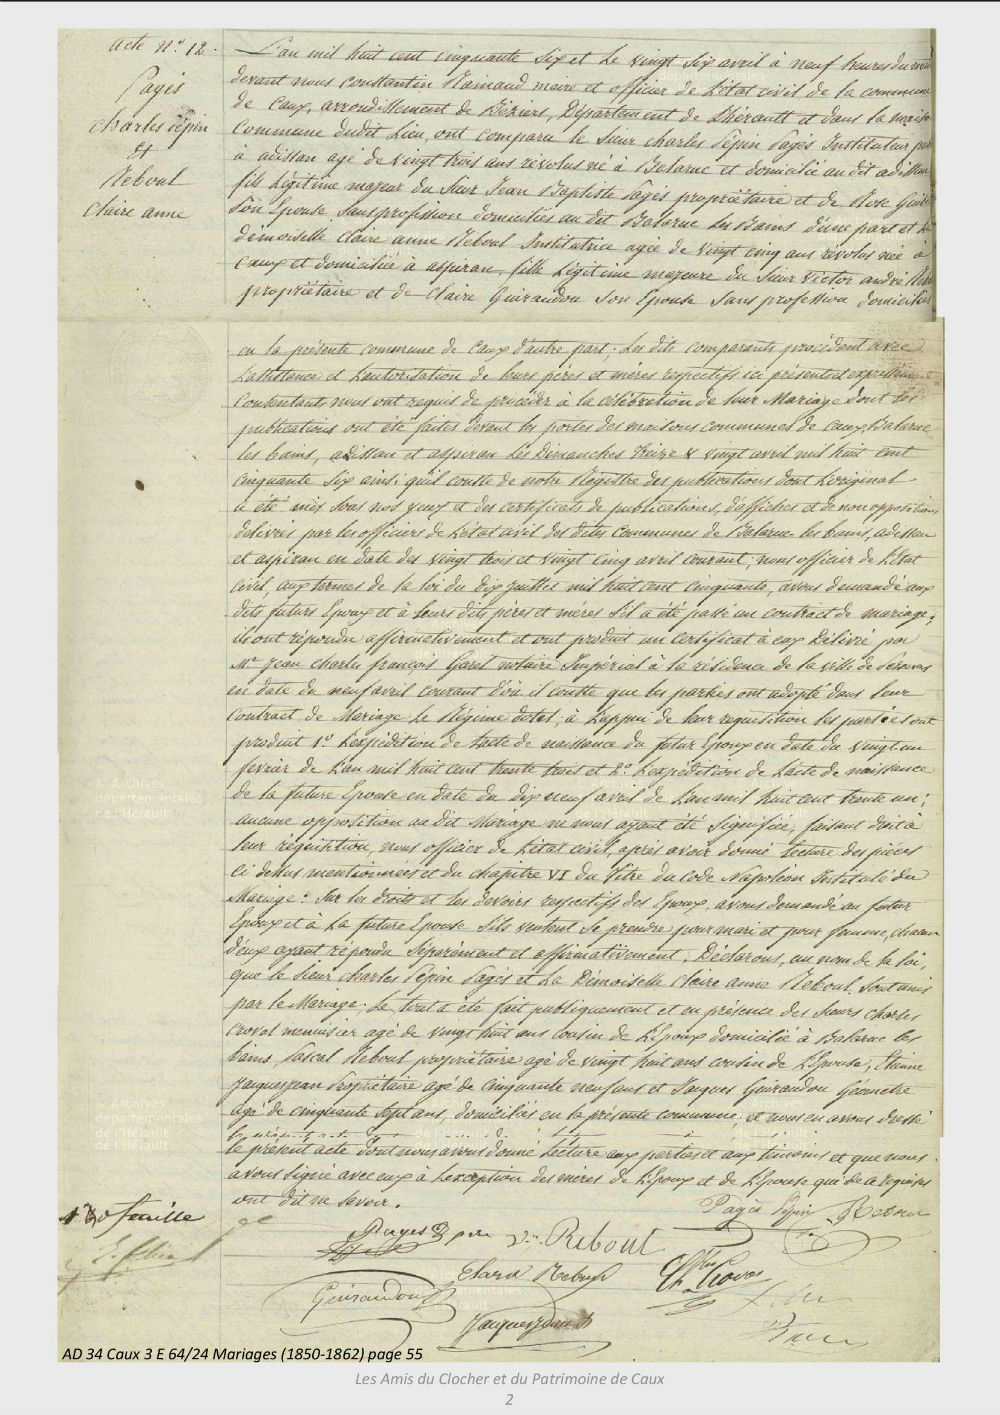 acte n.º 12.
Pagès
charles pépin
et
Reboul
claire anne
L'an mil huit cent cinquante six et le vingt six avril à neuf heures du
devant nous constantin maire et officier de l'état civil de la commune
de Caux, arrondissement de Béziers, Département de Lhérault et dans la maison
commune dudit lieu, ont comparu le sieur charles pépin Pagès Instituteur
à adissan agé de vingt trois ans révolus né à Balaruc et domicilié au dit adissan
fils légitime majeur du sieur Jean Baptiste Pagès propriétaire et de Rose
son Epouse sans profession domiciliés au dit Balaruc les Bains d'une part et la
démoiselle claire anne Reboul Institutrice agée de vingt cinq ans révolus née à
Caux et domiciliée à aspiran, fille légitime majeure du sieur Victor andré
propriétaire et de Claire Guiraudou son Epouse sans profession domiciliés
en la présente commune de Caux d'autre part; Les dits comparants procédant avec
L'assistance et l'autorisation de leurs péres et mères respectifs ici présents et
Consentants, nous ont requis de procéder à la célébration de leur Mariage dont les
publications ont été faites devant les portes des maisons communes de caux, Balaruc
les bains, adissan et aspiran les Dimanches treize & vingt avril mil huit cent
cinquante six ainsi qu'il conste de notre Régistre des publications dont l'original
a été mis sous nos yeux et des certificats de publications, d'affiches et de non opposition
délivrés par les officiers de l'état civil des dites Communes de Balaruc les bains, adissan
et aspiran en date des vingt trois et vingt cinq avril courant; nous officier de l'Etat
civil, aux termes de la loi du dix juillet mil huit cent cinquante, avons demandé aux
dits futurs Epoux et à leurs dits péres et mères s'il a été passé un contract de mariage;
ils ont répondu affirmativement et ont produit un Certificat à eux délivré par
Mr. Jean charles françois Garel notaire Impérial à la résidence de la ville de
en date du neuf avril courant d'où il conste que les parties ont adopté dans leur
contract de Mariage le Régime dotal; à l'appui de leur requisition les parties ont
produit 1.º L'expédition de l'acte de naissance du futur Epoux en date du vingt un
fevrier de l'an mil huit cent trente trois et 2.º L'expédition de l'acte de naissance
de la future Epouse en date du dix neuf avril de l'an mil huit cent trente un;
aucune opposition au dit Mariage ne nous ayant été signifiée, faisant droit à
leur réquisition, nous officier de l'état civil, après avoir donné lecture des pièces
ci dessus mentionnées et du chapitre VI du titre du code Napoléon Intitulé du
Mariage: Sur les droits et les devoirs respectifs des Epoux, avons demandé au futur
Epoux et à la future Epouse s'ils veulent se prendre pour mari et pour femme, chacun
d'eux ayant répondu séparément et affirmativement, Déclarons, au nom de la loi,
que le sieur charles Pépin Pagès et la Démoiselle Claire anne Reboul sont unis
par le Mariage. Le tout a été fait publiquement et en présence des sieurs charles
Crovot menuisier agé de vingt huit ans cousin de L'Epoux domicilié à Balaruc les
bains, Pascal Reboul propriétaire agé de vingt huit ans cousin de L'Epouse, Etienne
Jacquesjean Propriétaire agé de Cinquante neuf ans et Jacques Guiraudou Géomètre
agé de cinquante sept ans, domiciliés en la présente commune; et nous en avons dressé
le présent acte dont nous avons donné lecture aux parties et aux témoins et que nous
avons signé avec eux à L'exception des mères de L'Epoux et de L'Epouse qui de ce requises
ont dit ne savoir.
Pagès Pépin Reboul
Pages père Reboul
Guiraudou
Archives
départementales
de l'Hérault
AD 34 Caux 3 E 64/24 Mariages (1850-1862) page 55
Les Amis du Clocher et du Patrimoine de Caux
2